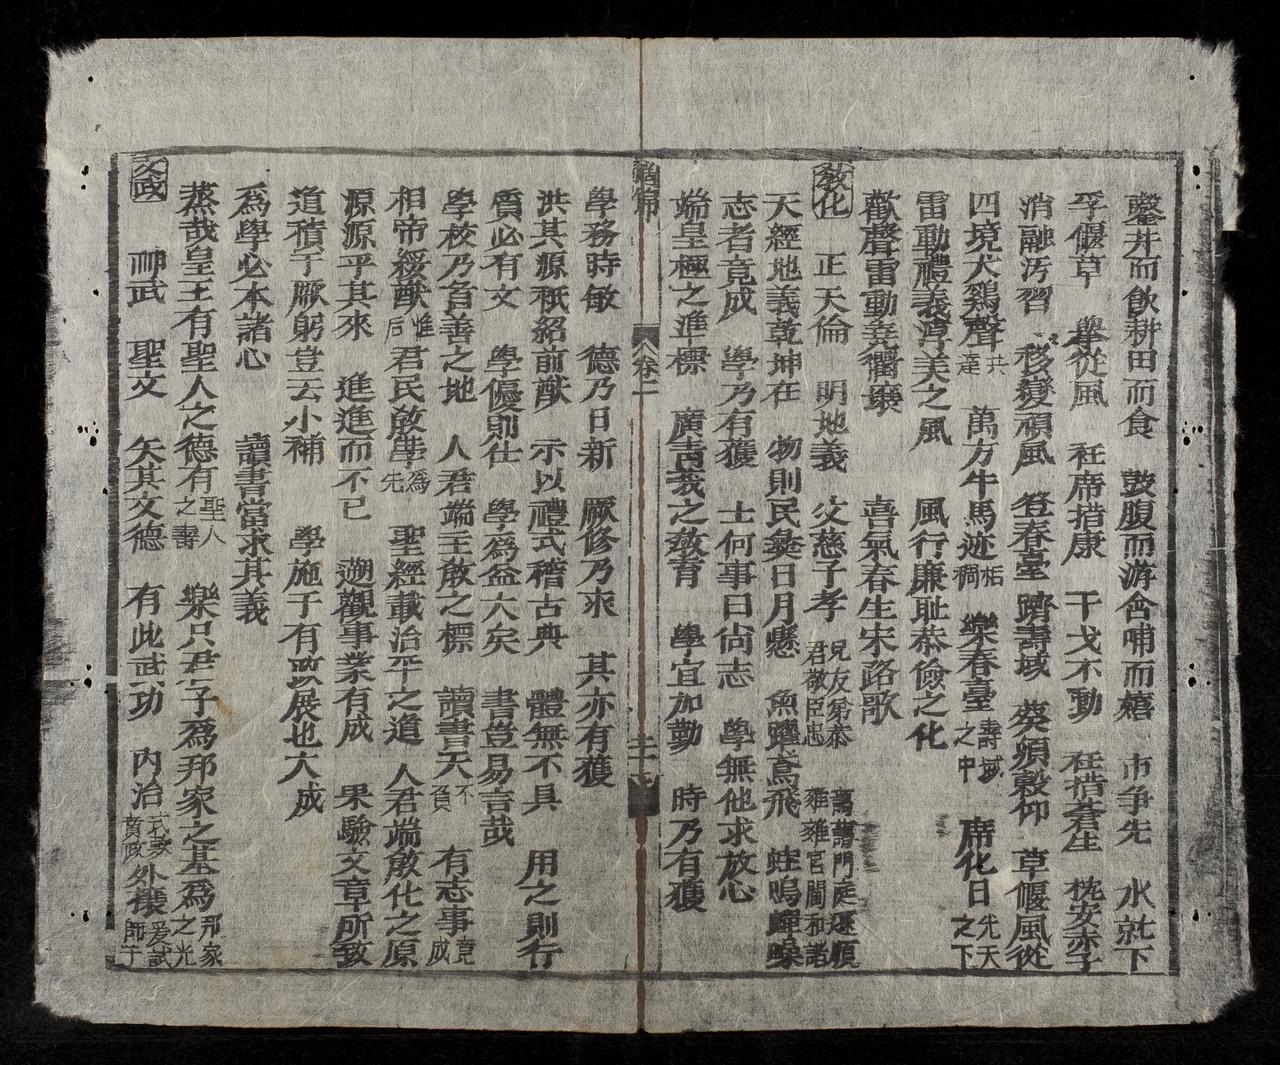 鑿井而飮耕田而食 鼓腹而游含哺而嬉 市争先 水就下
孚偃草 擧從風 衽席措康 干戈不動 衽措蒼生 枕安赤子
消融汚習 移變頑風 登春臺 躋壽域 葵傾穀仰 草偃風從
四境犬鷄聲共達 萬方牛馬迹栢稠 樂春臺壽域之中 席化日先天之下
雷動禮義濟美之風 風行廉耻恭儉之化
歡聲雷動堯衢壤 喜氣春生宋路歌
敎化 正天倫 明地義 父慈子孝 兄友弟恭 君敬臣忠 藹藹門庭遜順 雍雍宮閫和諧
天經地義乾坤在 物則民彜日月懸 魚躍鳶飛 蛙鳴蟬噪
志者竟成 學乃有獲 士何事曰尙志 學無他求放心
端皇極之準標 廣菁莪之敎育 學宜加勤 時乃有獲
卷二
學務時敏 德乃日新 厥修乃來 其亦有獲
洪其源祇紹前猷 示以禮式稽古典 體無不具 用之則行
質必有文 學優則仕 學爲益大矣 書豈易言哉
學校乃首善之地 人君端主敎之標 讀書天不負 有志事竟成
相帝綏猷惟后 君民敎學爲先 聖經載治平之道 人君端敎化之原
源源乎其來 進進而不已 遡觀事業有成 果驗文章所致
道積于厥躬豈云小補 學施于有政展也大成
爲學必本諸心 讀書當求其義
蒸哉皇王有聖人之德有聖人之壽 樂只君子爲邦家之基爲邦家之光
文武 神武 聖文 矢其文德 有此武功 內治式敷賁政 外攘爰試師干